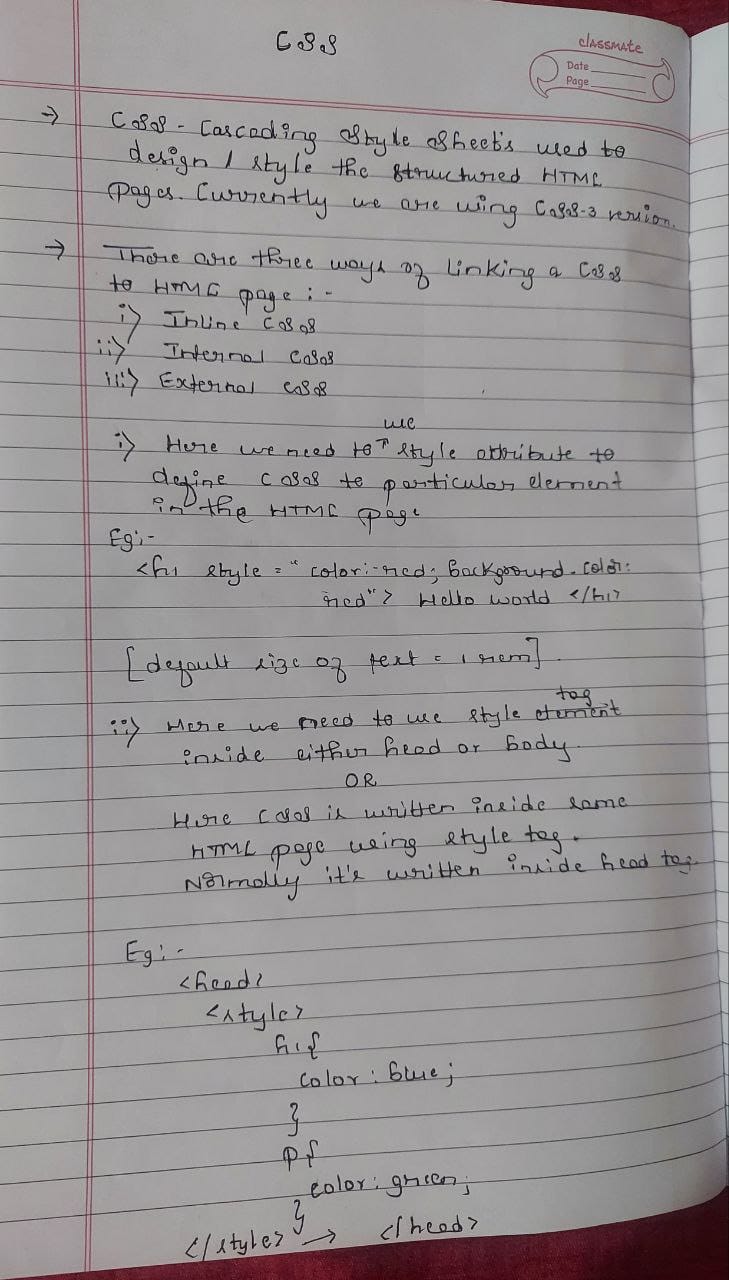 CSS
classmate
Date
Page
→ CSS - Cascading Style Sheet's used to
design / style the structured HTML
pages. Currently we are using CSS-3 version.
→ There are three ways of linking a CSS
to HTML page :-
i) Inline CSS
ii) Internal CSS
iii) External CSS
use
i) Here we need to ↑ style attribute to
define CSS to particular element
in the HTML page
Eg:-
<h1 style = " color:-red; background-color:
red"> Hello world </h1>
[default size of text = 1 rem].
tag
ii) Here we need to use style element
inside either head or body.
OR
Here CSS is written inside same
HTML page using style tag.
Normally it's written inside head tag.
Eg:-
<head>
<style>
h1{
color: blue;
}
p{
color: green;
}
</style> → </head>